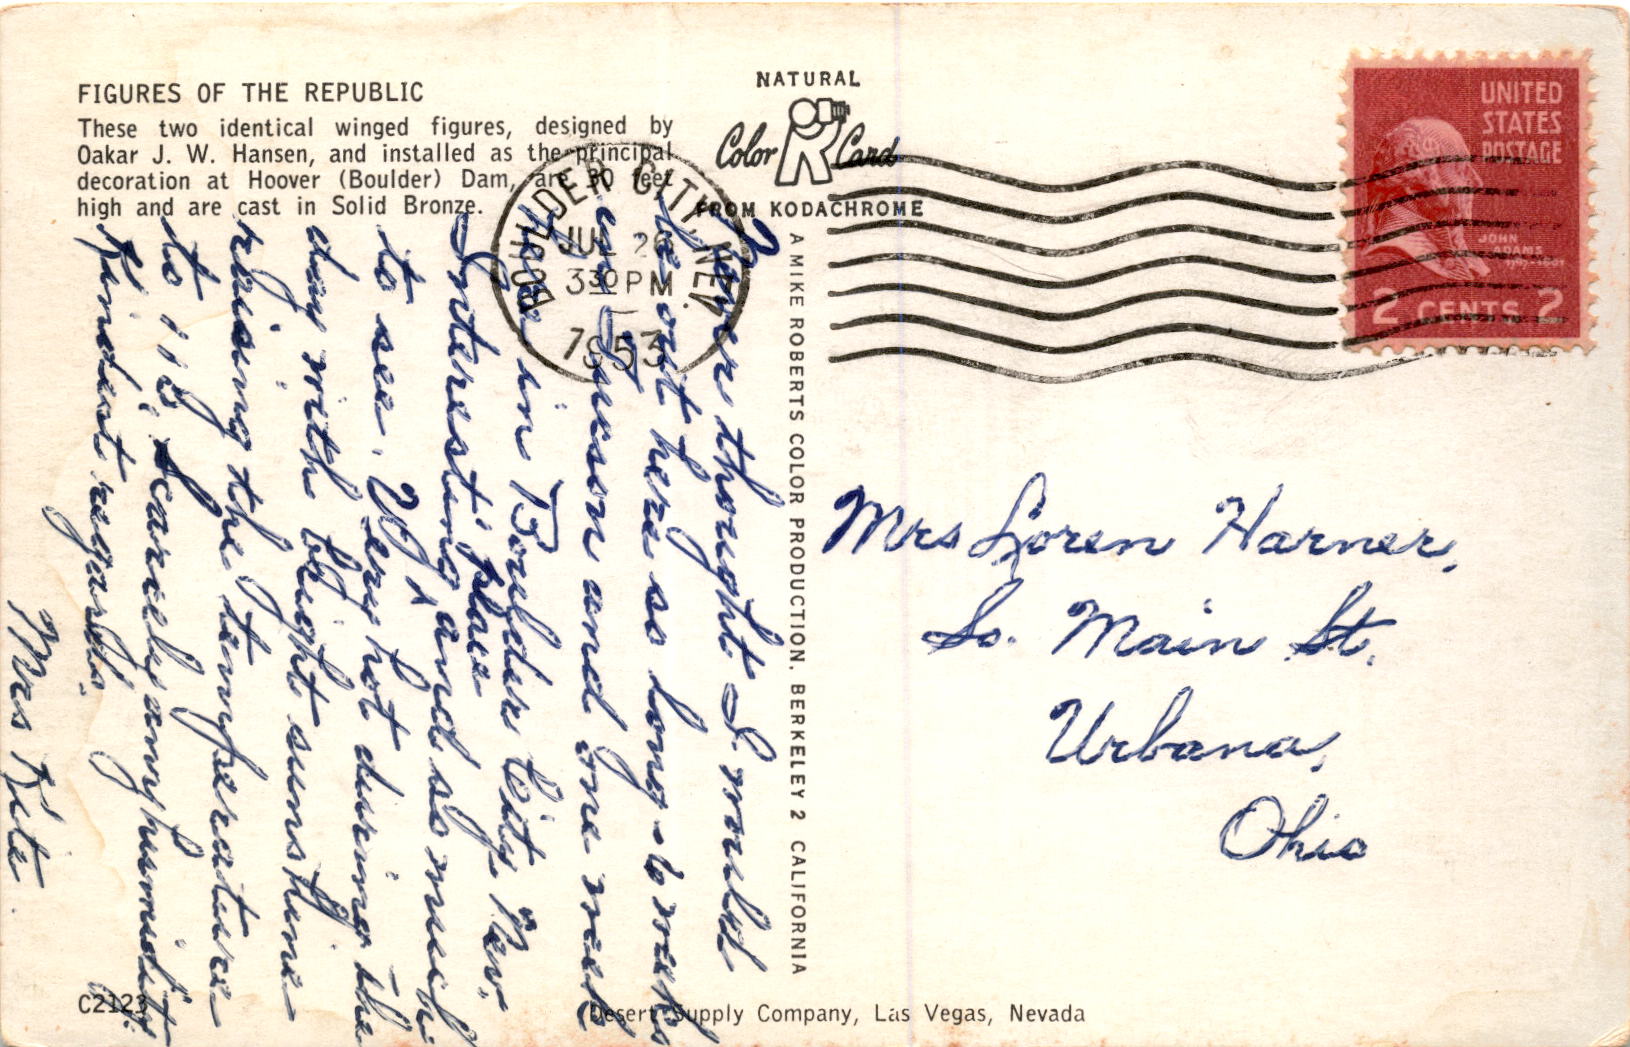 FIGURES OF THE REPUBLIC
These two identical winged figures, designed by
Oakar J. W. Hansen, and installed as the principal
decoration at Hoover (Boulder) Dam, are 30 feet
high and are cast in Solid Bronze.
NATURAL
Color Card
FROM KODACHROME
A MIKE ROBERTS COLOR PRODUCTION, BERKELEY 2 CALIFORNIA
BOULDER CITY, NEV.
JUL 26
3 30 PM
1953
UNITED
STATES
POSTAGE
JOHN
ADAMS
1797-1801
2 CENTS 2
Never thought I would
be out here so long - 6 weeks
in Tucson and one week
in Boulder City, Nev.
Interesting place and so much
to see. Very hot during the
day with bright sunshine
raising the temperature
to 113. Scarcely any humidity.
Kindest regards.
Mrs Kite.
Mrs Loren Harner,
So. Main St.
Urbana,
Ohio
C2123
Desert Supply Company, Las Vegas, Nevada